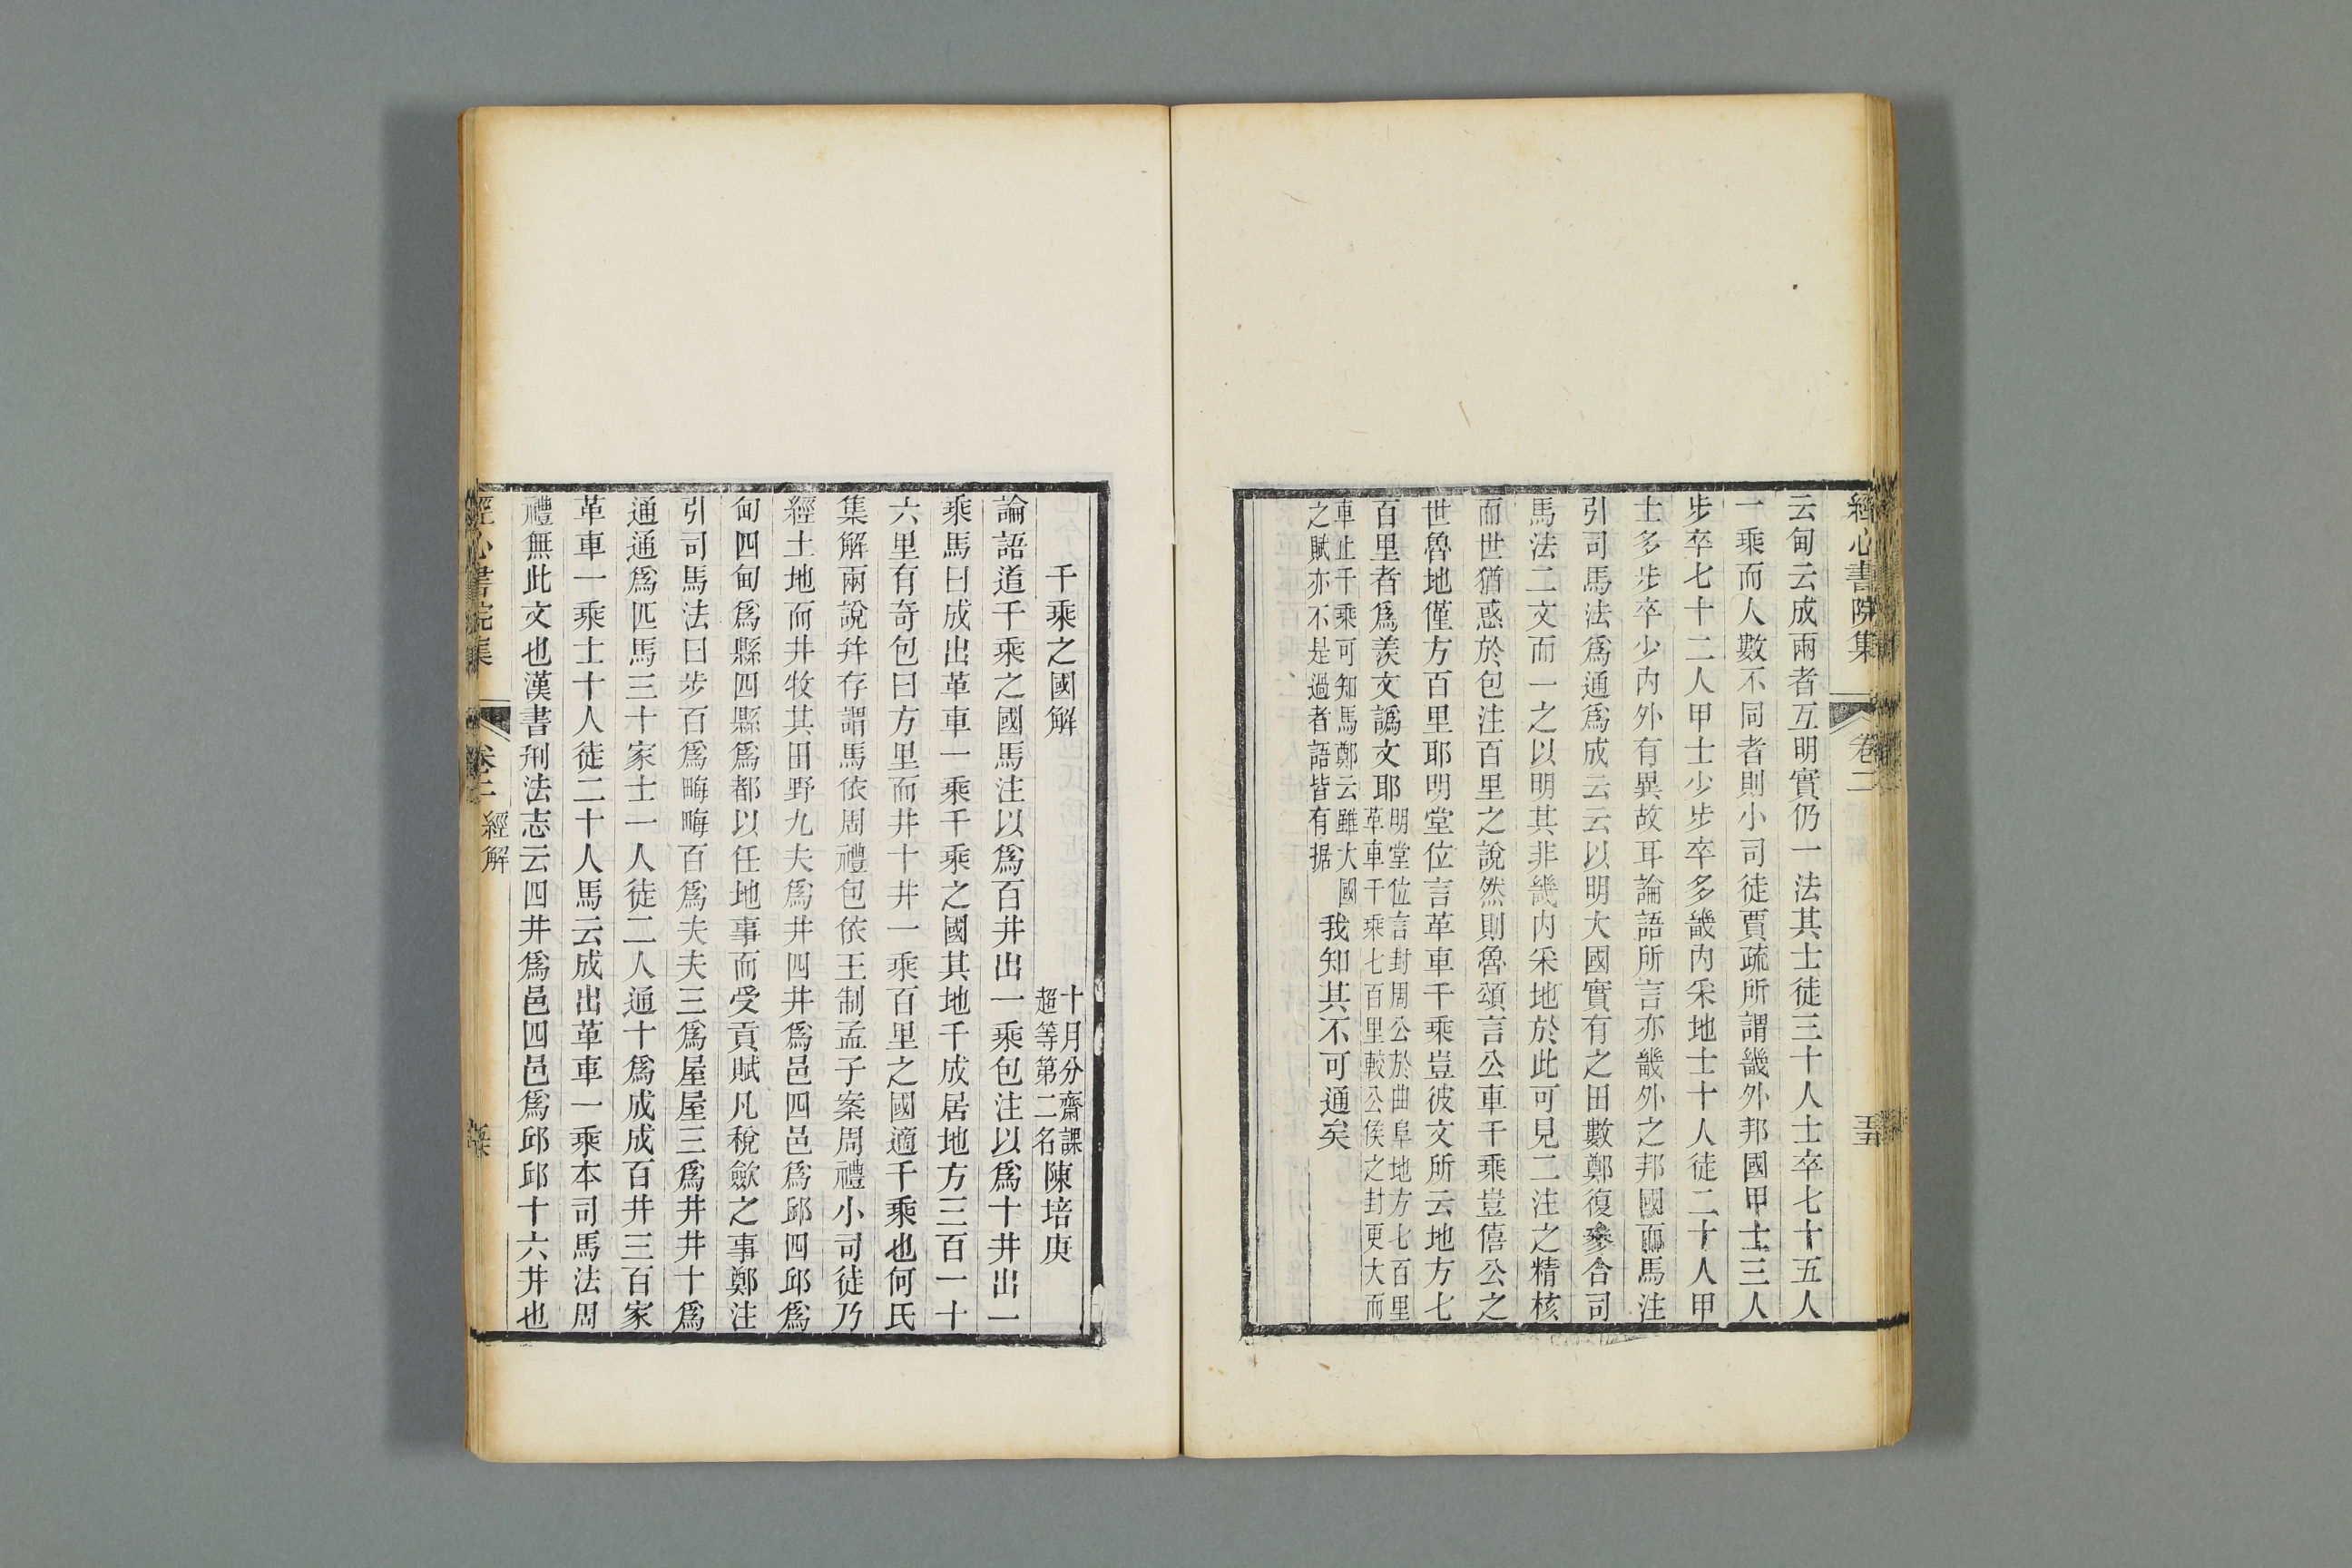 經心書院集 卷二 五
云甸云成兩者互明實仍一法其士徒三十人士卒七十五人
一乘而人數不同者則小司徒賈疏所謂畿外邦國甲士三人
步卒七十二人甲士少步卒多畿內采地士十人徒二十人甲
士多步卒少內外有異故耳論語所言亦畿外之邦國而馬注
引司馬法爲通爲成云云以明大國實有之田數鄭復參合司
馬法二文而一之以明其非畿內采地於此可見二注之精核
而世猶惑於包注百里之說然則魯頌言公車千乘豈僖公之
世魯地僅方百里耶明堂位言革車千乘豈彼文所云地方七
百里者爲羨文譌文耶明堂位言封周公於曲阜地方七百里
革車千乘七百里較公侯之封更大而
車止千乘可知馬鄭云雖大國
之賦亦不是過者語皆有据我知其不可通矣
千乘之國解 十月分齋課
超等第二名陳培庚
論語道千乘之國馬注以爲百井出一乘包注以爲十井出一
乘馬曰成出革車一乘千乘之國其地千成居地方三百一十
六里有奇包曰方里而井十井一乘百里之國適千乘也何氏
集解兩說幷存謂馬依周禮包依王制孟子案周禮小司徒乃
經土地而井牧其田野九夫爲井四井爲邑四邑爲邱四邱爲
甸四甸爲縣四縣爲都以任地事而受貢賦凡稅斂之事鄭注
引司馬法曰步百爲畮畮百爲夫夫三爲屋屋三爲井井十爲
通通爲匹馬三十家士一人徒二人通十爲成成百井三百家
革車一乘士十人徒二十人馬云成出革車一乘本司馬法周
禮無此文也漢書刑法志云四井爲邑四邑爲邱邱十六井也
經心書院集 卷二 經解